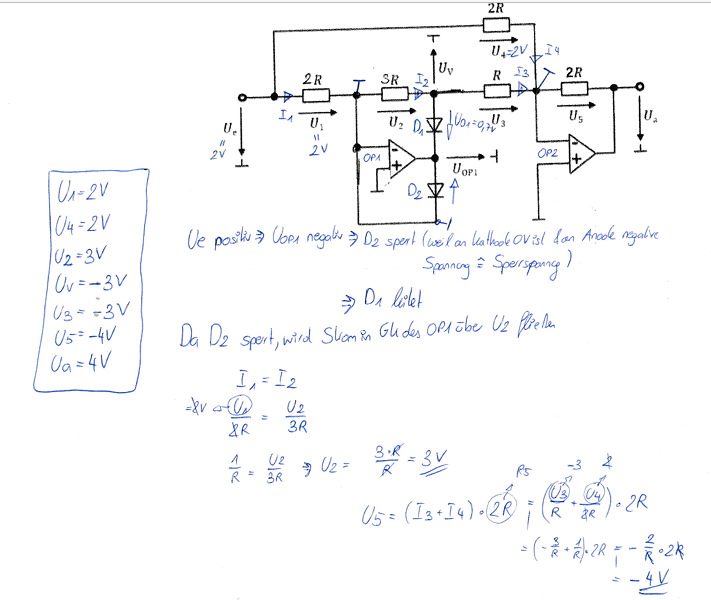 2R
U₄=2V
I₄
2R
3R
I₂
U_V
R
I₃
2R
I₁
U₁
U₂
D₁
U_D1=0,7V
U₃
U₅
U_e
2V
"
2V
OP1
U_OP1
OP2
U_a
D₂
U₁=2V
U₄=2V
U₂=3V
U_V=-3V
U₃=-3V
U₅=-4V
U_a=4V
Ue positiv ⇒ U_OP1 negativ ⇒ D₂ sperrt (weil an Kathode 0V ist & an Anode negative
Spannung ≙ Sperrspanng)
⇒ D₁ leitet
Da D₂ sperrt, wird Strom in Gk des OP1 über U₂ fließen
I₁ = I₂
=2V ⇐ U₁/2R = U₂/3R
1/R = U₂/3R ⇒ U₂ = 3·R/R = 3V
R5 -3 2
U₅ = (I₃+I₄)·2R = (U₃/R + U₄/2R)·2R
= (-3/R + 1/R)·2R = -2/R·2R
= -4V